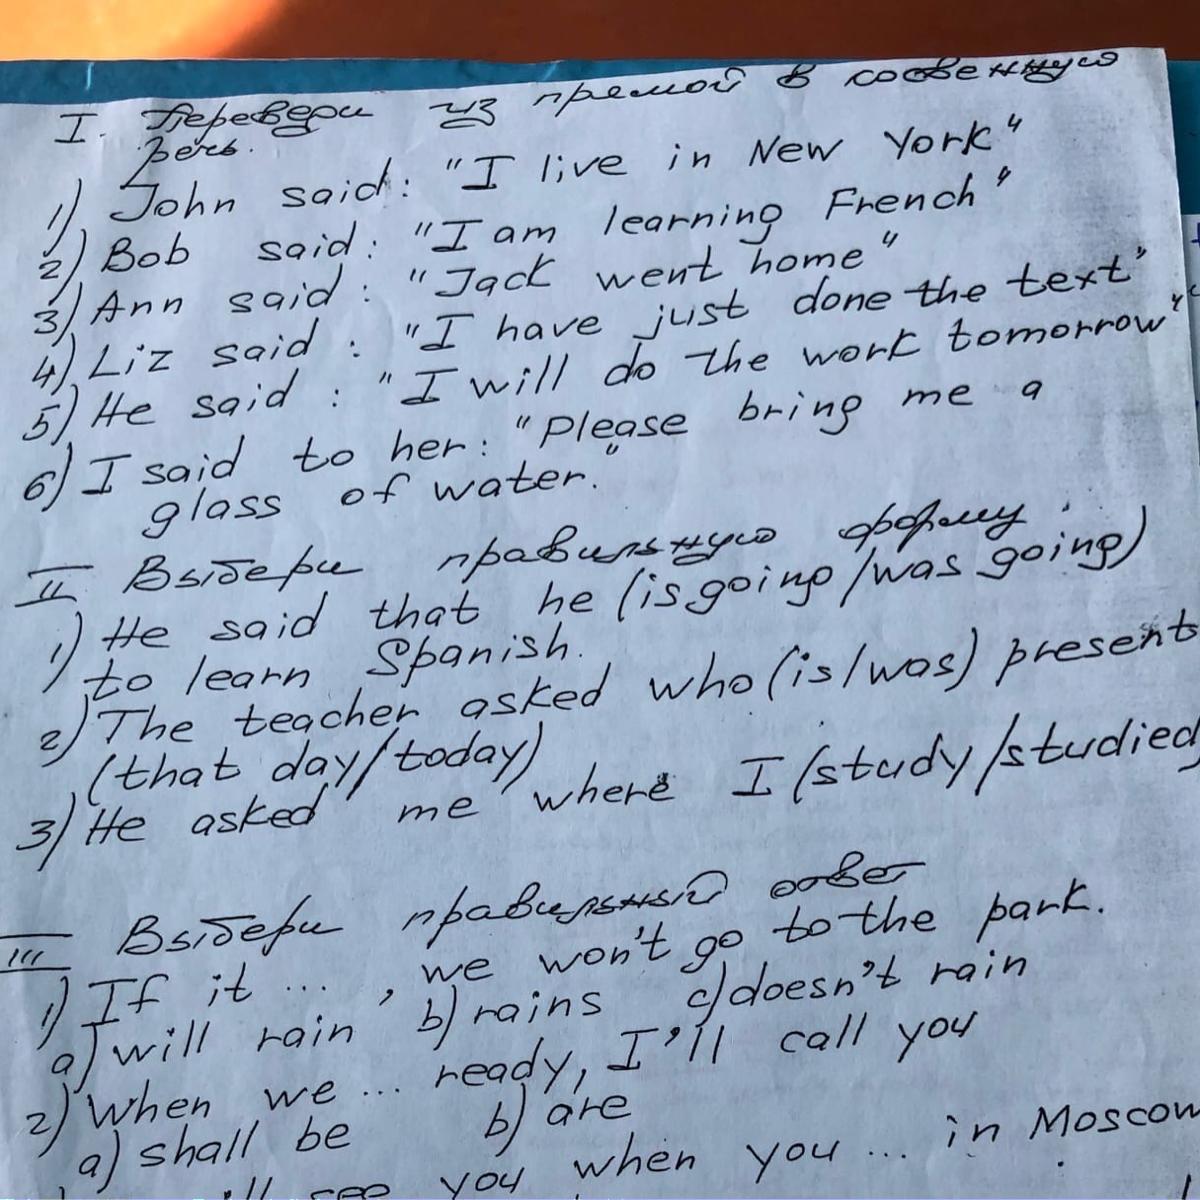 I. Переведи из прямой в косвенную
речь.
1) John said: "I live in New York"
2) Bob said: "I am learning French"
3) Ann said: "Jack went home"
4) Liz said: "I have just done the text"
5) He said: "I will do the work tomorrow"
6) I said to her: "Please bring me a
glass of water."
II Выбери правильную форму:
1) He said that he (is going/was going)
to learn Spanish.
2) The teacher asked who (is/was) present
(that day/today)
3) He asked me where I (study/studied)
III Выбери правильный ответ
1) If it ... , we won't go to the park.
a) will rain b) rains c) doesn't rain
2) When we ... ready, I'll call you
a) shall be b) are
see you when you ... in Moscow